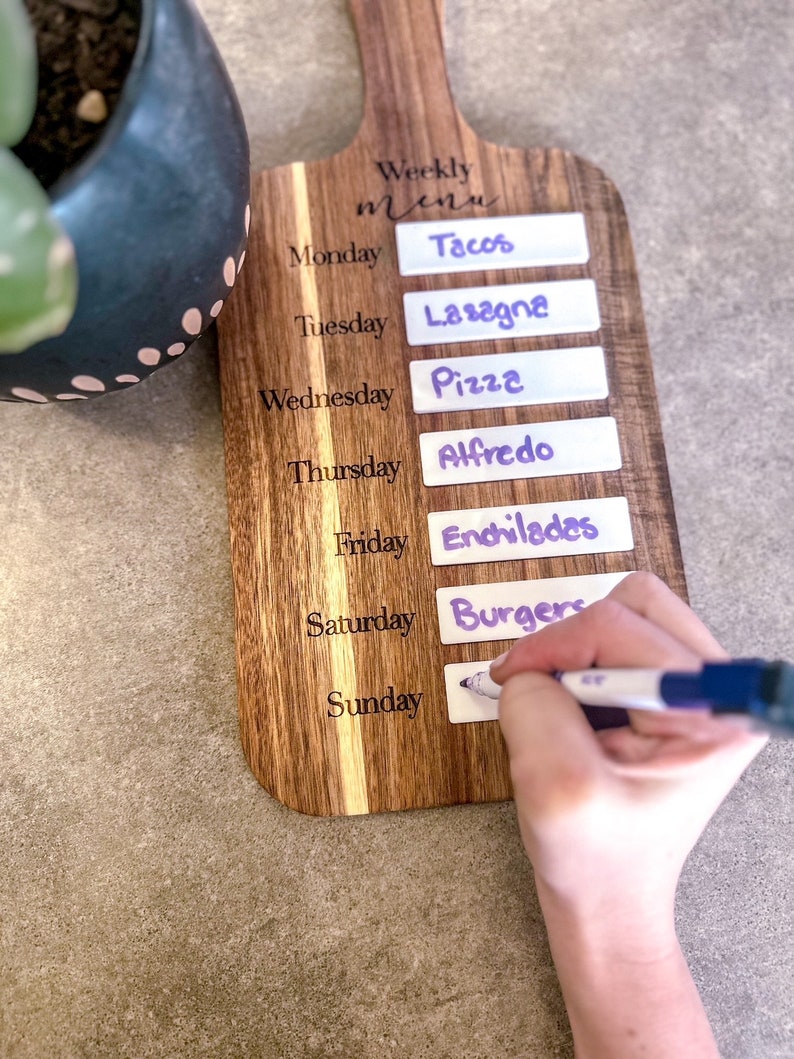 Weekly
menu
Monday Tacos
Tuesday Lasagna
Wednesday Pizza
Thursday Alfredo
Friday Enchiladas
Saturday Burgers
Sunday